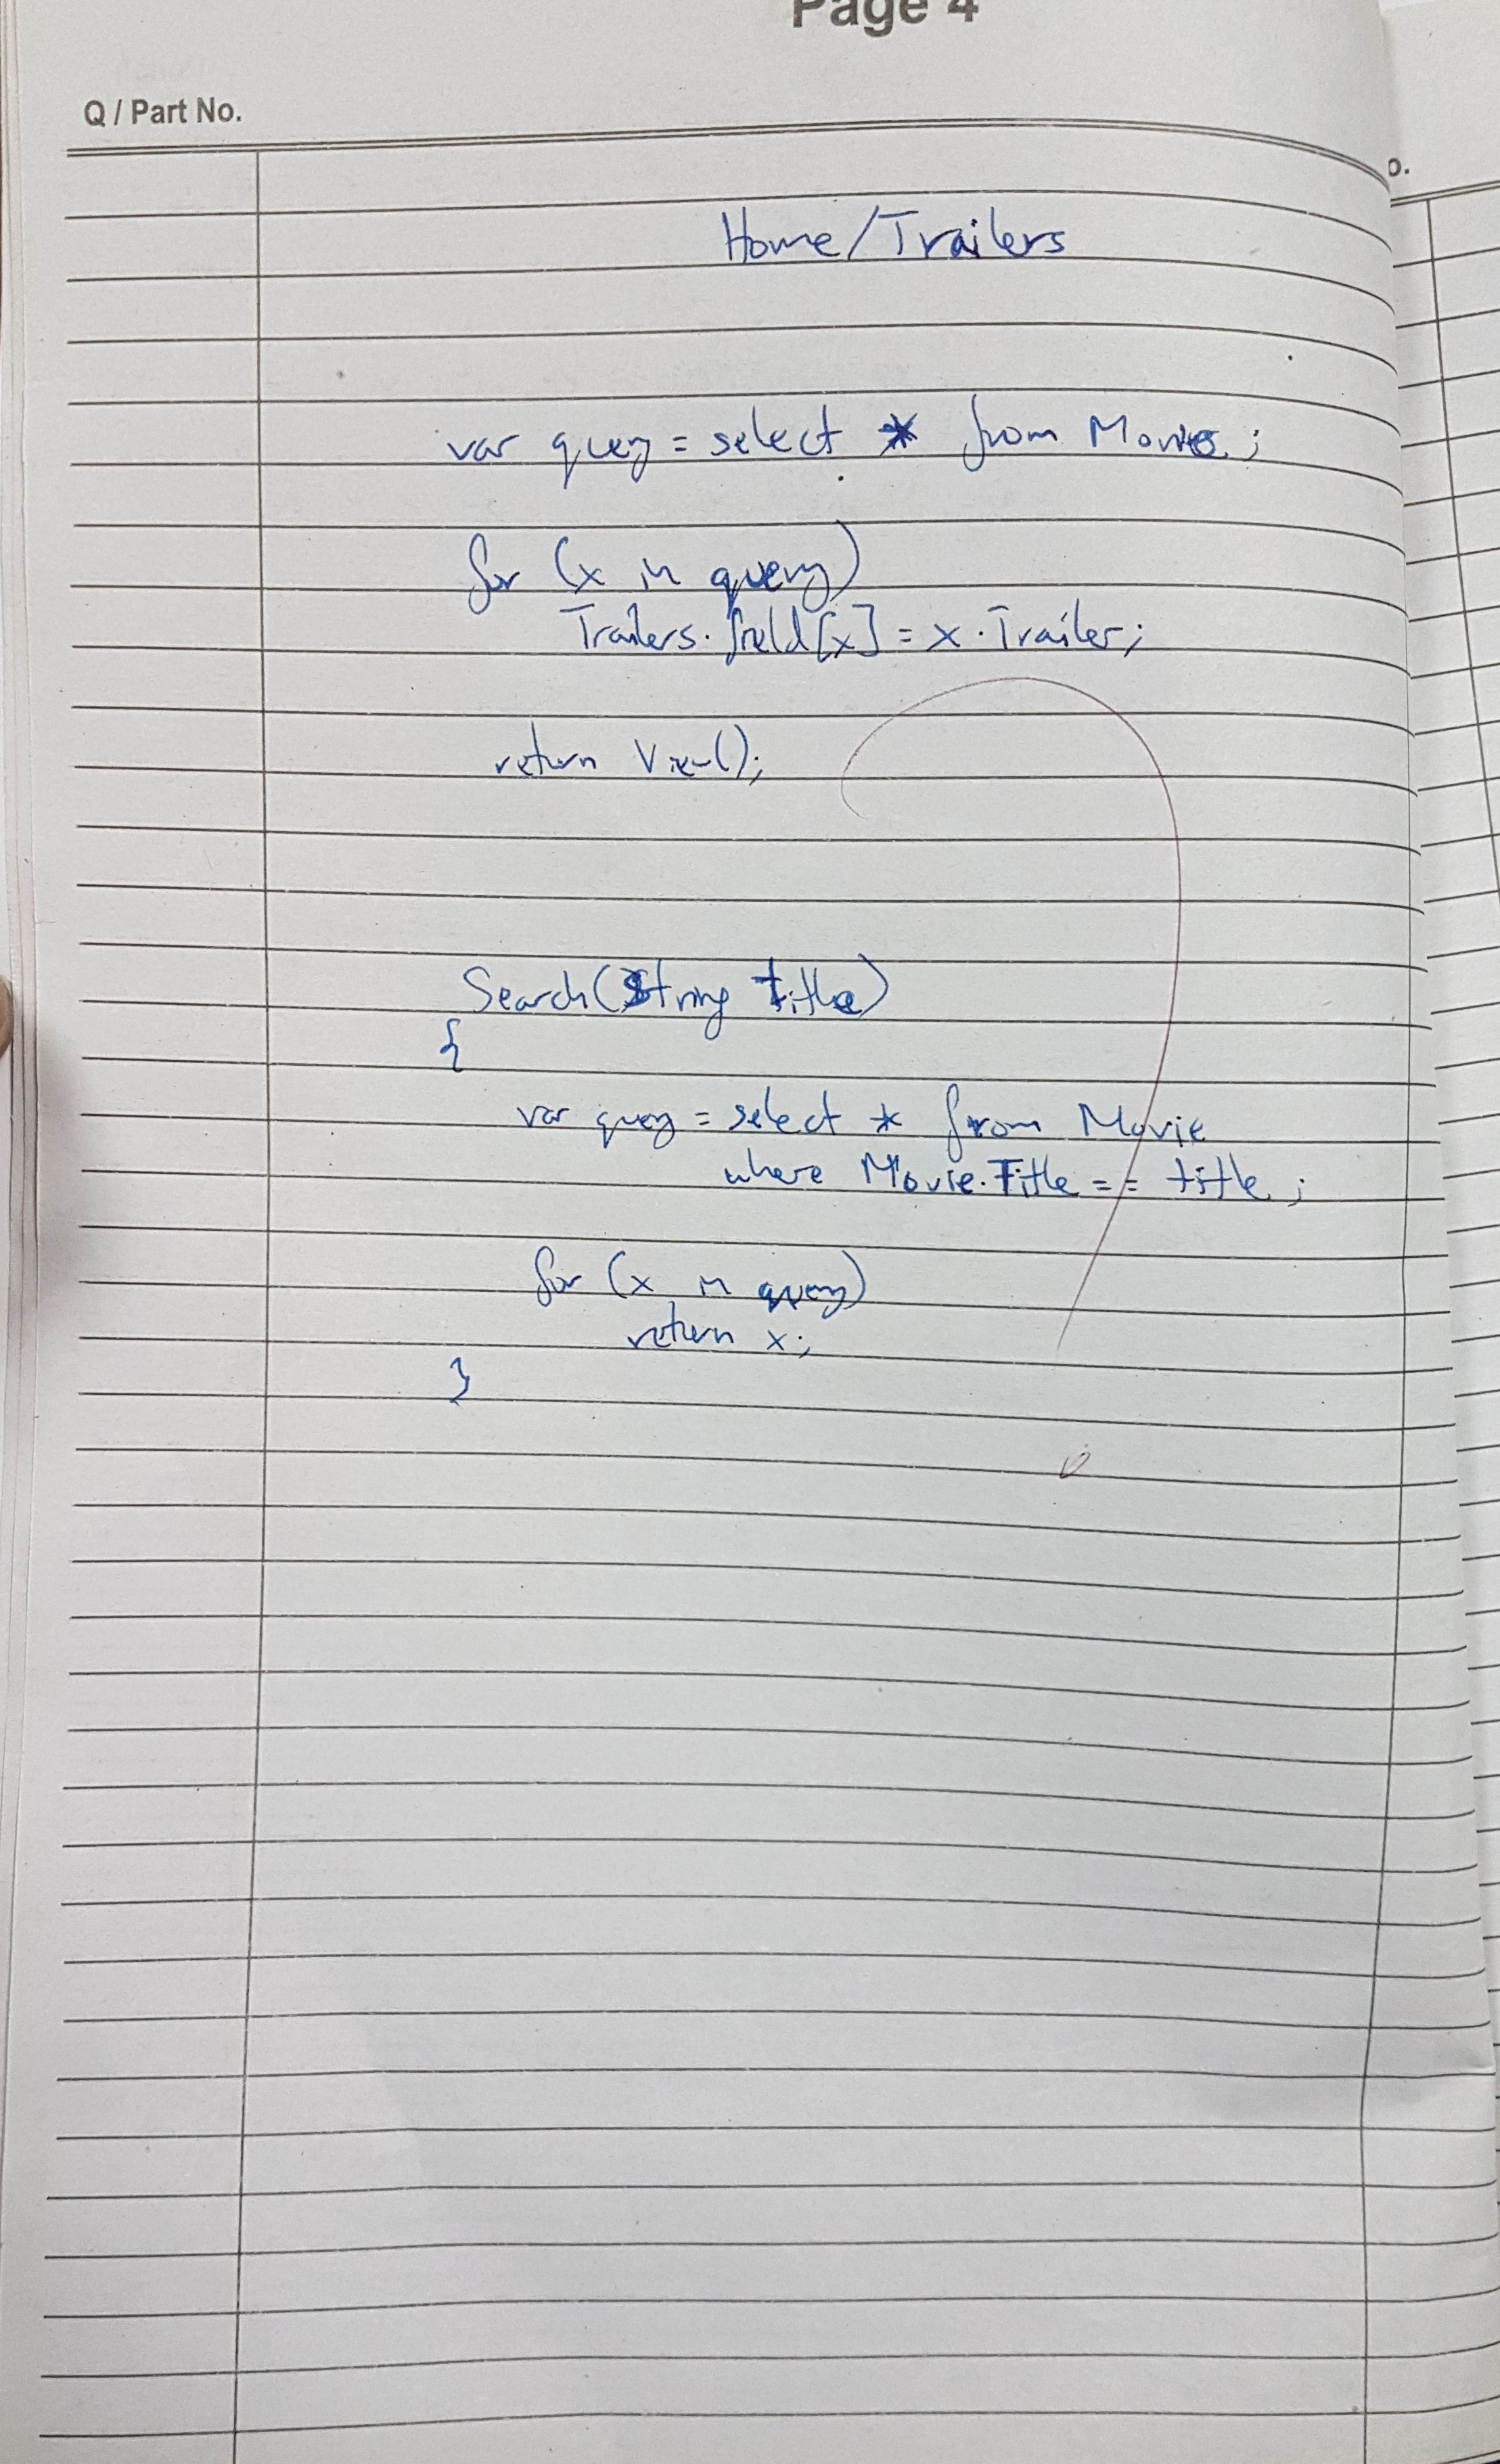 Page 4
Q / Part No.
o.
Home/Trailers
var query = select * from Movies;
for (x in query)
Trailers.field[x] = x.Trailer;
return View();
Search(String title)
{
var query = select * from Movie
where Movie.Title == title;
for (x in query)
return x;
}